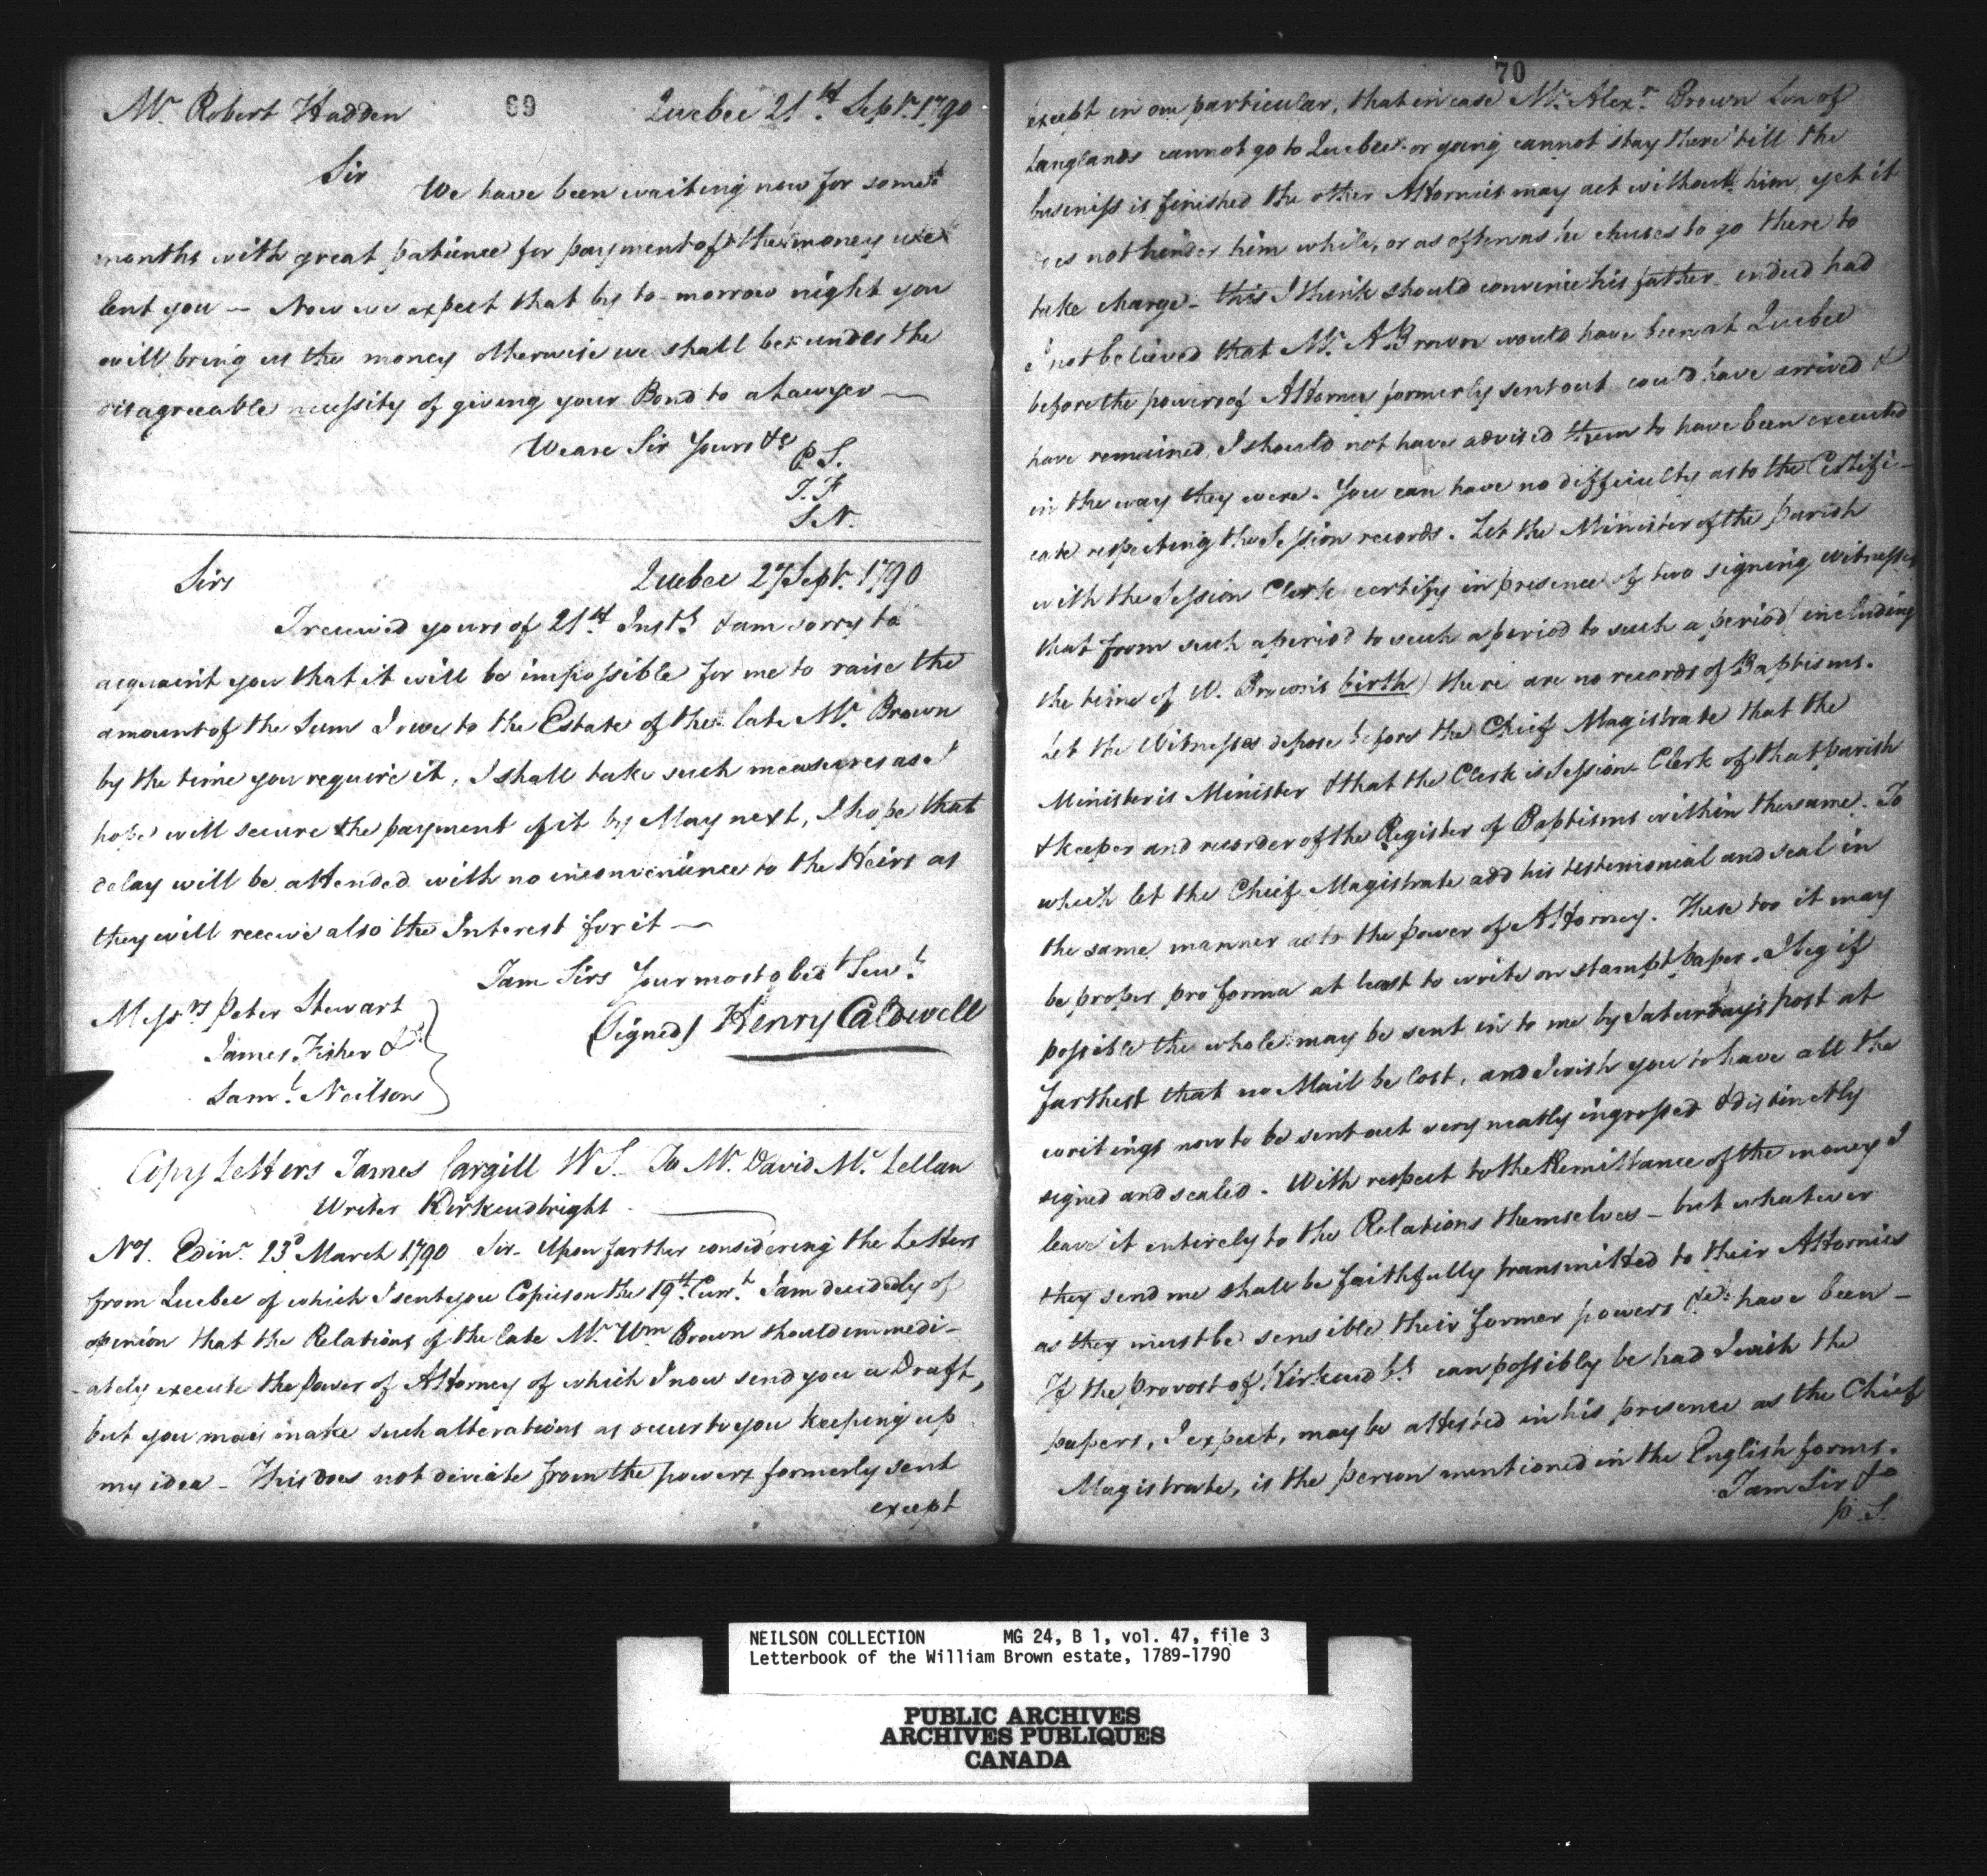 Mr. Robert Hadden 69 Quebec 21st. Septr. 1790
Sir We have been waiting now for some
months with great patience for payment of the money we
lent you — Now we expect that by to-morrow night you
will bring us the money otherwise we shall be under the
disagreeable necessity of giving your Bond to a Lawyer —
We are Sir Yours &c
P S.
J. F
S N.
Sirs Quebec 27 Septr. 1790
I received yours of 21st. Inst. & am sorry to
acquaint you that it will be impossible for me to raise the
amount of the Sum I owe to the Estate of the late Mr. Brown
by the time you require it, I shall take such measures as I
hope will secure the payment of it by May next, I hope that
delay will be attended with no inconvenience to the Heirs as
they will receive also the Interest for it —
I am Sirs Your most obedt Servt.
Messrs Peter Stewart
(Signed) Henry Caldwell
James Fisher &
Saml. Neilson
Copy Letters James Cargill W S. To Mr. David Mc. Lellan
Writer Kirkcudbright —
No 1. Edinr. 23d March 1790 Sir— Upon farther considering the Letters
from Quebec of which I sent you Copies on the 19th. Curt. I am decidedly of
opinion that the Relations of the late Mr. Wm Brown should immedi-
-ately execute the Power of Attorney of which I now send you a Draft,
but you may make such alterations as occur to you keeping up
my idea — This does not deviate from the powers formerly sent
except
70
except in one particular, that in case Mr. Alexr. Brown Son of
Langlands cannot go to Quebec or going cannot stay there till the
business is finished the other Attornies may act without him, yet it
does not hinder him while, or as often as he chuses to go there to
take charge — this I think should convince his father — indeed had
I not believed that Mr. A Brown would have been at Quebec
before the powers of Attorney formerly sent out could have arrived &
have remained, I should not have advised them to have been executed
in the way they were. You can have no difficulty as to the Certifi-
cate respecting the Session records. Let the Minister of the parish
with the Session Clerk certify in presence of two signing witnesses
that from such a period to such a period to such a period (including
the time of W. Brown's birth) there are no records of Baptisms.
Let the Witnesses depose before the Chief Magistrate that the
Minister is Minister & that the Clerk is Session Clerk of that parish
& keeper and recorder of the Register of Baptisms within the same. To
which let the Chief Magistrate add his testimonial and seal in
the same manner as to the power of Attorney. These too it may
be proper pro forma at least to write on stampt paper. I beg if
possible the whole may be sent in to me by Saturday's post at
farthest that no Mail be lost, and I wish you to have all the
writings now to be sent out very neatly ingrossed & distinctly
signed and sealed. With respect to the Remittance of the money I
leave it entirely to the Relations themselves — but whatever
they send me shall be faithfully transmitted to their Attornies
as they must be sensible their former powers &c. have been —
If the Provost of Kirkcudbt. can possibly be had I wish the
papers, I expect, may be attested in his presence as the Chief
Magistrate, is the person mentioned in the English forms.
I am Sir &c
P. S.
NEILSON COLLECTION MG 24, B 1, vol. 47, file 3
Letterbook of the William Brown estate, 1789-1790
PUBLIC ARCHIVES
ARCHIVES PUBLIQUES
CANADA